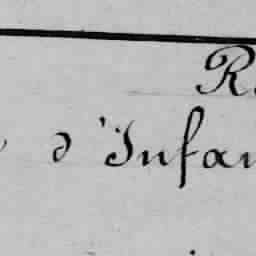 R
d'Infan